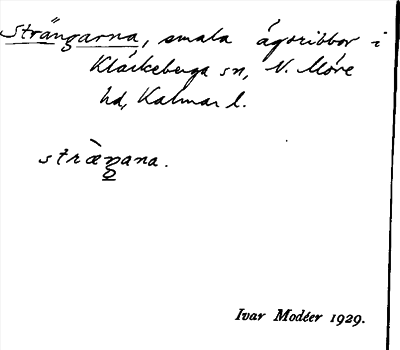 Strängarna, smala ägoribbor i
Kläckeberga sn, N. Möre
hd, Kalmar l.
stræ̀ŋana.
Ivar Modéer 1929.